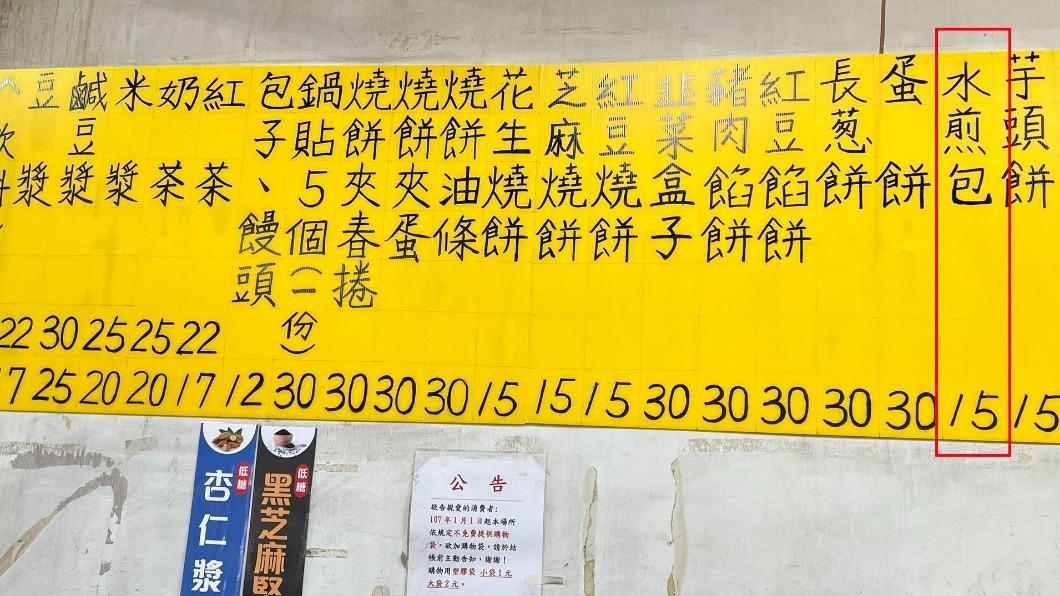 芋頭餅 15
水煎包 15
蛋餅 30
長葱餅 30
紅豆餡餅 30
豬肉餡餅 30
韭菜盒子 30
紅豆燒餅 15
芝麻燒餅 15
花生燒餅 15
燒餅油條 30
燒餅夾蛋 30
燒餅夾春捲 30
鍋貼5個(一份) 30
包子、饅頭 12
紅茶 22 17
奶茶 25 20
米漿 25 20
鹹豆漿 30 25
豆漿 22 7
低糖
杏仁漿
低糖
黑芝麻堅
公告
敬告親愛的消費者:
107年1月1日起本場所
依規定不免費提供購物
袋。欲加購物袋,請於結
帳前主動告知,謝謝!
購物用塑膠袋 小袋1元
大袋2元。